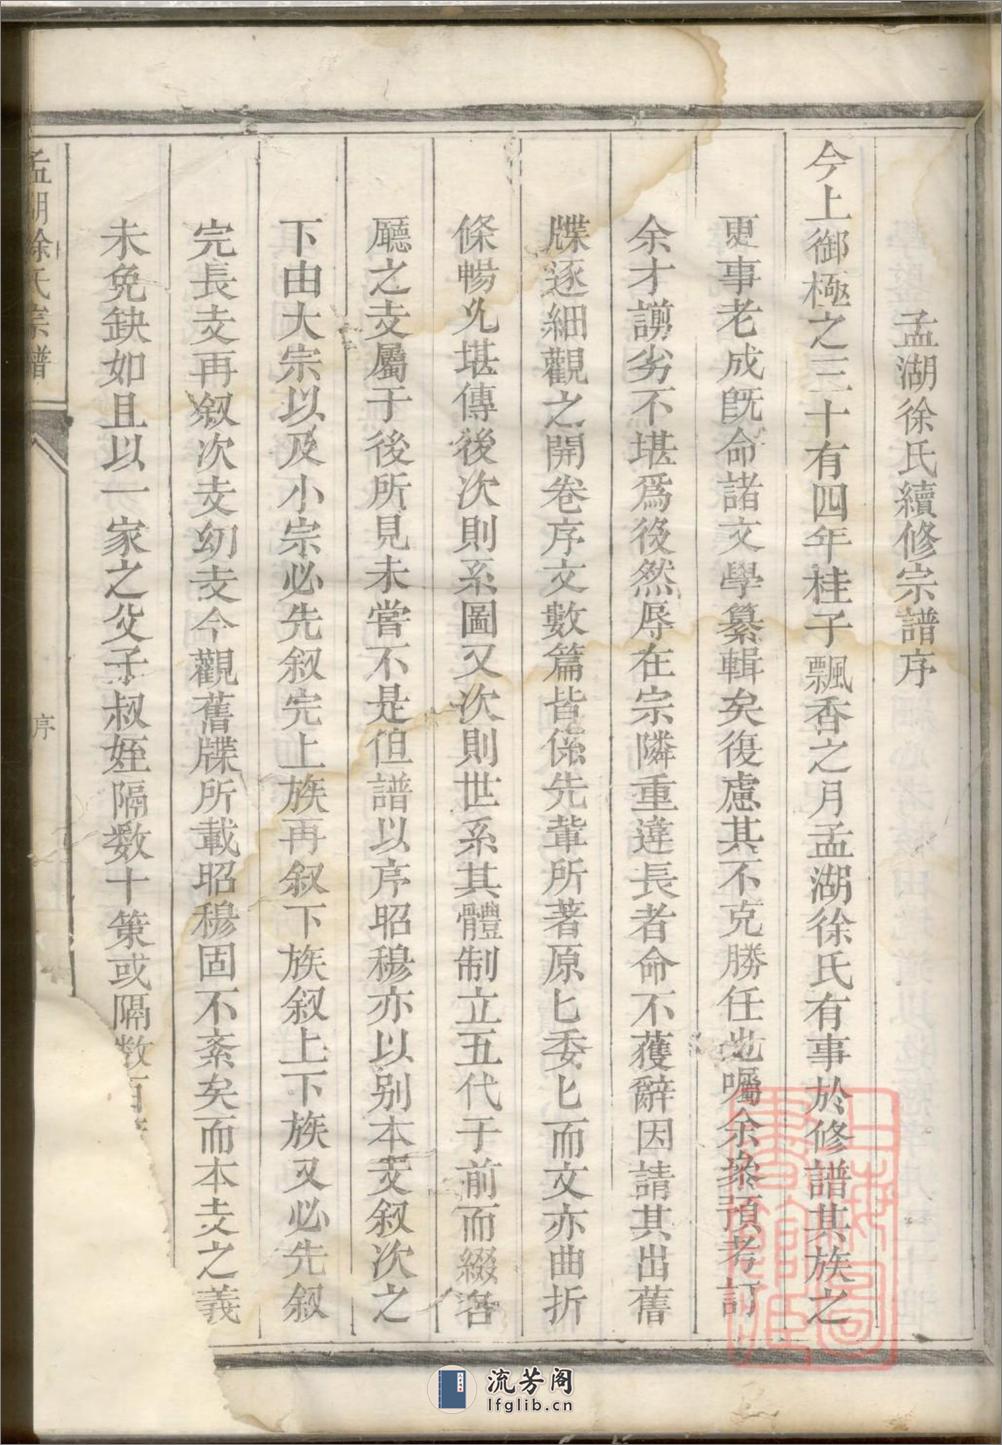 孟湖徐氏續修宗譜序
今上御極之三十有四年桂子飄香之月孟湖徐氏有事於修譜其族之
更事老成既命諸文學纂輯矣復慮其不克勝任也囑余叅預考訂
余才譾劣不堪爲役然辱在宗隣重違長者命不獲辭因請其出舊
牒逐細觀之開卷序文數篇皆係先軰所著原匕委匕而文亦曲折
條暢允堪傳後次則系圖又次則世系其體制立五代于前而綴各
廳之支屬于後所見未嘗不是但譜以序昭穆亦以别本支叙次之
下由大宗以及小宗必先叙完上族再叙下族叙上下族又必先叙
完長支再叙次支幼支今觀舊牒所載昭穆固不紊矣而本支之義
未免缺如且以一家之父子叔姪隔數十策或隔数百
孟湖徐氏宗譜
序
上海圖書館藏
流芳阁
lfglib.cn